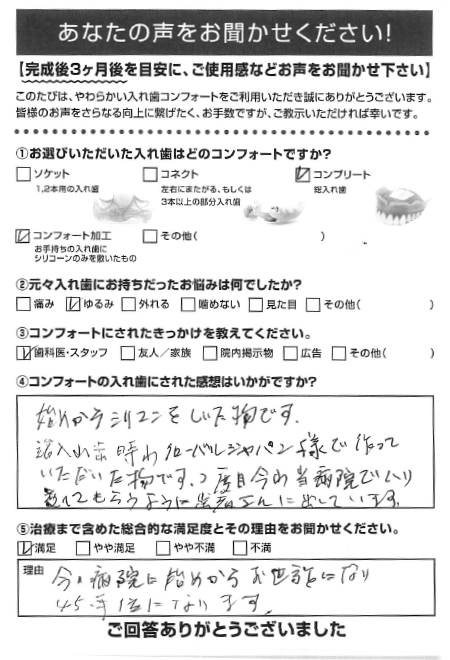 あなたの声をお聞かせください!
【完成後3ヶ月後を目安に、ご使用感などお声をお聞かせ下さい】
このたびは、やわらかい入れ歯コンフォートをご利用いただき誠にありがとうございます。
皆様のお声をさらなる向上に繋げたく、お手数ですが、ご教示いただければ幸いです。
①お選びいただいた入れ歯はどのコンフォートですか?
ソケット コネクト コンプリート
1,2本用の入れ歯 左右にまたがる、もしくは 総入れ歯
3本以上の部分入れ歯
コンフォート加工 その他( )
お手持ちの入れ歯に
シリコーンのみを敷いたもの
②元々入れ歯にお持ちだったお悩みは何でしたか?
痛み ゆるみ 外れる 噛めない 見た目 その他( )
③コンフォートにされたきっかけを教えてください。
歯科医・スタッフ 友人/家族 院内掲示物 広告 その他( )
④コンフォートの入れ歯にされた感想はいかがですか?
始めからシリコンをしいた物です.
総入れ歯時わグローバルジャパン様で作って
いただいた物です. 2度目今わ当病院でハリ
もらうように患者さんに出しています.
⑤治療まで含めた総合的な満足度とその理由をお聞かせください。
満足 やや満足 やや不満 不満
理由 今の病院に始めからお世話になり
45年位になります.
ご回答ありがとうございました